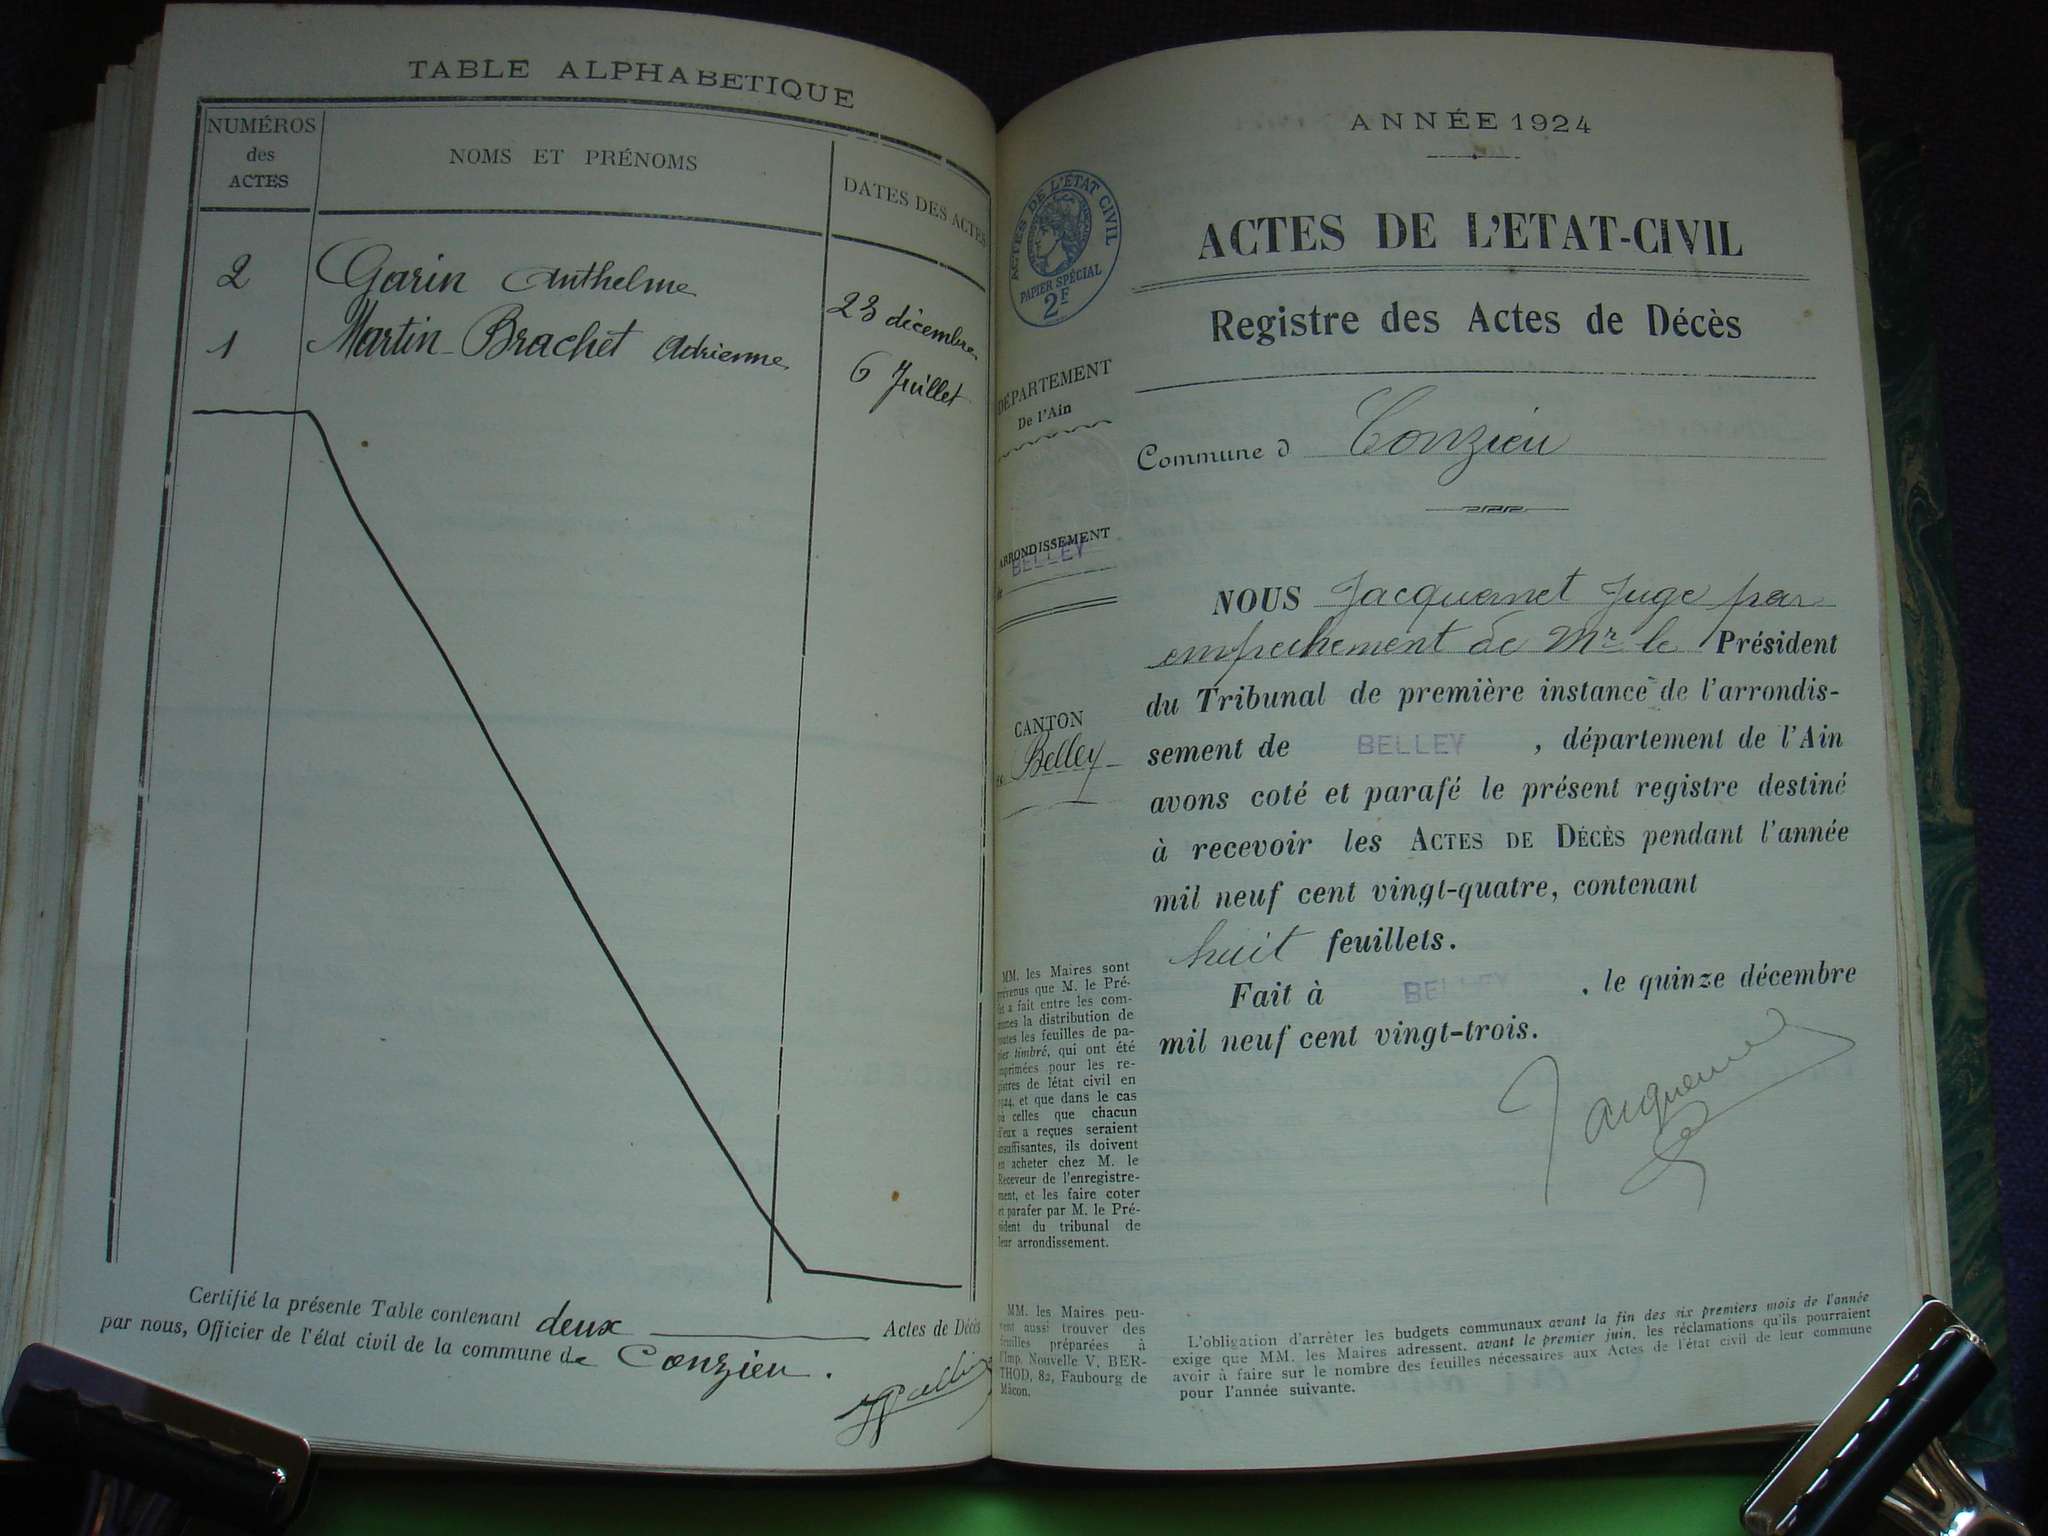 TABLE ALPHABETIQUE
NUMÉROS
des
ACTES
NOMS ET PRÉNOMS
DATES DES ACTES
2 Garin Anthelme 23 décembre
1 Martin-Brachet Adrienne 6 Juillet
Certifié la présente Table contenant deux Actes de Décès
par nous, Officier de l'état civil de la commune de Conzieu.
ANNÉE 1924
ACTES DE L'ÉTAT CIVIL
PAPIER SPÉCIAL
2F
ACTES DE L'ETAT-CIVIL
Registre des Actes de Décès
DÉPARTEMENT
De l'Ain
Commune d Conzieu
ARRONDISSEMENT
de BELLEY
CANTON
de Belley
NOUS Jacquemet Juge par
empechement de Mr le Président
du Tribunal de première instance de l'arrondis-
sement de BELLEY, département de l'Ain
avons coté et parafé le présent registre destiné
à recevoir les ACTES DE DÉCÈS pendant l'année
mil neuf cent vingt-quatre, contenant
huit feuillets.
Fait à BELLEY, le quinze décembre
mil neuf cent vingt-trois.
Jacquemet
MM. les Maires sont
prévenus que M. le Pré-
fet a fait entre les com-
munes la distribution de
toutes les feuilles de pa-
pier timbré, qui ont été
imprimées pour les re-
gistres de l'état civil en
1924, et que dans le cas
où celles que chacun
d'eux a reçues seraient
insuffisantes, ils doivent
en acheter chez M. le
Receveur de l'enregistre-
ment, et les faire coter
et parafer par M. le Pré-
sident du tribunal de
leur arrondissement.
MM. les Maires peu-
vent aussi trouver des
feuilles préparées à
l'Imp. Nouvelle V. BER-
THOD, 82, Faubourg de
Mâcon.
L'obligation d'arrêter les budgets communaux avant la fin des six premiers mois de l'année
exige que MM. les Maires adressent, avant le premier juin, les réclamations qu'ils pourraient
avoir à faire sur le nombre des feuilles nécessaires aux Actes de l'état civil de leur commune
pour l'année suivante.